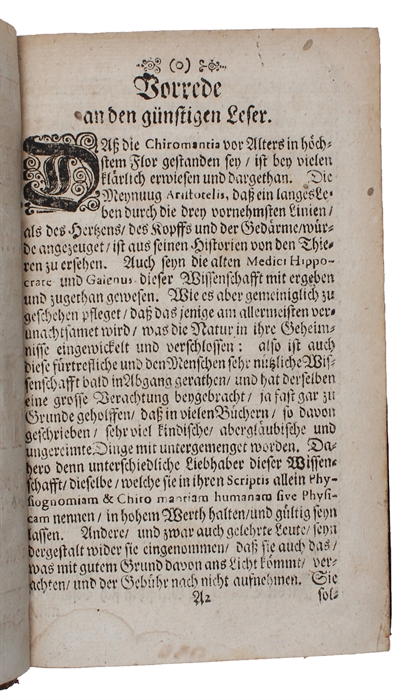 (o)
Vorrede
an den günstigen Leser.
DAß die Chiromantia vor Alters in höch-
stem Flor gestanden sey / ist bey vielen
klärlich erwiesen und dargethan. Die
Meynuug Aristotelis, daß ein langes Le-
ben durch die drey vornehmsten Linien /
als des Hertzens / des Kopffs und der Gedärme / wür-
de angezeuget / ist aus seinen Historien von den Thie-
ren zu ersehen. Auch seyn die alten Medici Hippo-
crate und Galenus dieser Wissenschafft mit ergeben
und zugethan gewesen. Wie es aber gemeiniglich zu
geschehen pfleget / daß das jenige am allermeisten ver-
unachtsamet wird / was die Natur in ihre Geheim-
nisse eingewickelt und verschlossen : also ist auch
diese fürtrefliche und den Menschen sehr nützliche Wis-
senschafft bald in Abgang gerathen / und hat derselben
eine grosse Verachtung beygebracht / ja fast gar zu
Grunde geholffen / daß in vielen Büchern / so davon
geschrieben / sehr viel kindische / abergläubische und
ungereimte Dinge mit untergemenget worden. Da-
hero denn unterschiedliche Liebhaber dieser Wissen-
schafft / dieselbe / welche sie in ihren Scriptis allein Phy-
siognomiam & Chiromantiam humanam sive Physi-
cam nennen / in hohem Werth halten / und gültig seyn
lassen. Andere / und zwar auch gelehrte Leute / seyn
dergestalt wider sie eingenommen / daß sie auch das /
was mit gutem Grund davon ans Licht kömmt / ver-
achten / und der Gebühr nach nicht aufnehmen. Sie
A2 sol-